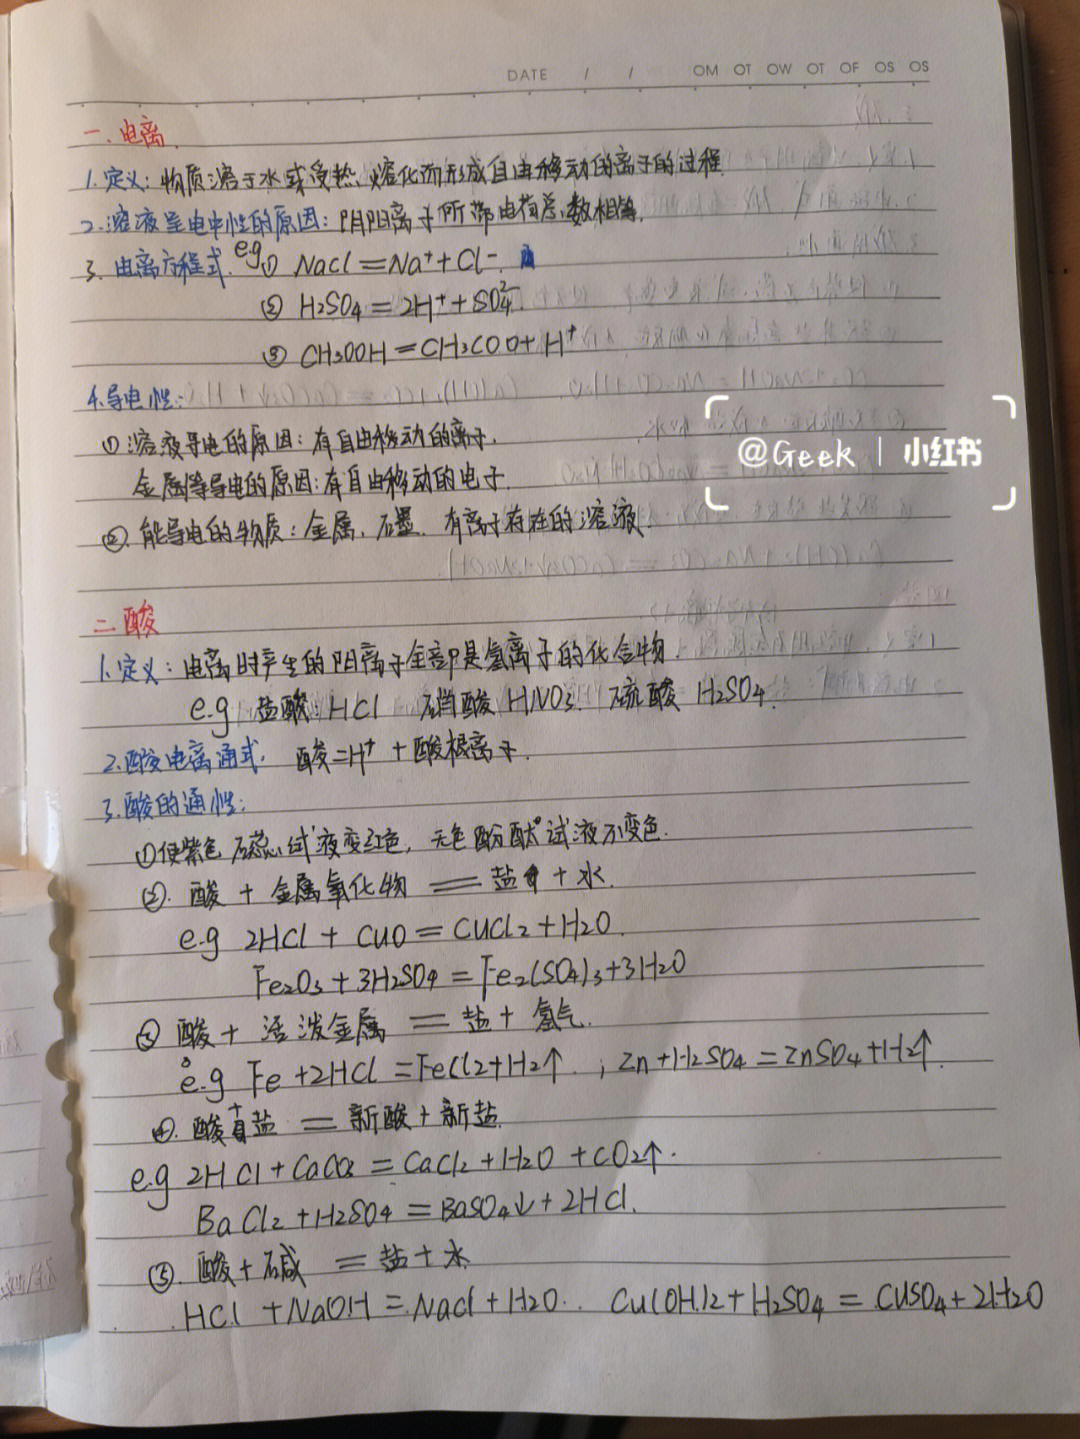 DATE / / OM OT OW OT OF OS OS
一、电离.
1.定义：物质溶于水或受热熔化而形成自由移动的离子的过程
2.溶液呈电中性的原因：阴阳离子所带电荷总数相等.
3.电离方程式. e.g① NaCl=Na⁺+Cl⁻.
② H₂SO₄=2H⁺+SO₄²⁻.
③ CH₃OOH=CH₃COO+H⁺
4.导电性：
①溶液导电的原因：有自由移动的离子.
金属等导电的原因：有自由移动的电子.
②.能导电的物质：金属、石墨.有离子存在的溶液.
@Geek | 小红书
二.酸
1.定义：电离时产生的阳离子全部是氢离子的化合物.
e.g 盐酸：HCl 硝酸 HNO₃. 硫酸 H₂SO₄.
2.酸电离通式. 酸=H⁺+酸根离子.
3.酸的通性：
①使紫色石蕊试液变红色，无色酚酞试液不变色.
②.酸+金属氧化物=盐+水.
e.g 2HCl+CuO=CuCl₂+H₂O.
Fe₂O₃+3H₂SO₄=Fe₂(SO₄)₃+3H₂O
③ 酸+活泼金属=盐+氢气.
e.g Fe+2HCl=FeCl₂+H₂↑. ; Zn+H₂SO₄=ZnSO₄+H₂↑.
④.酸+盐=新酸+新盐.
e.g 2HCl+CaCO₃=CaCl₂+H₂O+CO₂↑.
BaCl₂+H₂SO₄=BaSO₄↓+2HCl.
⑤.酸+碱=盐+水
HCl+NaOH=NaCl+H₂O.. Cu(OH)₂+H₂SO₄=CuSO₄+2H₂O